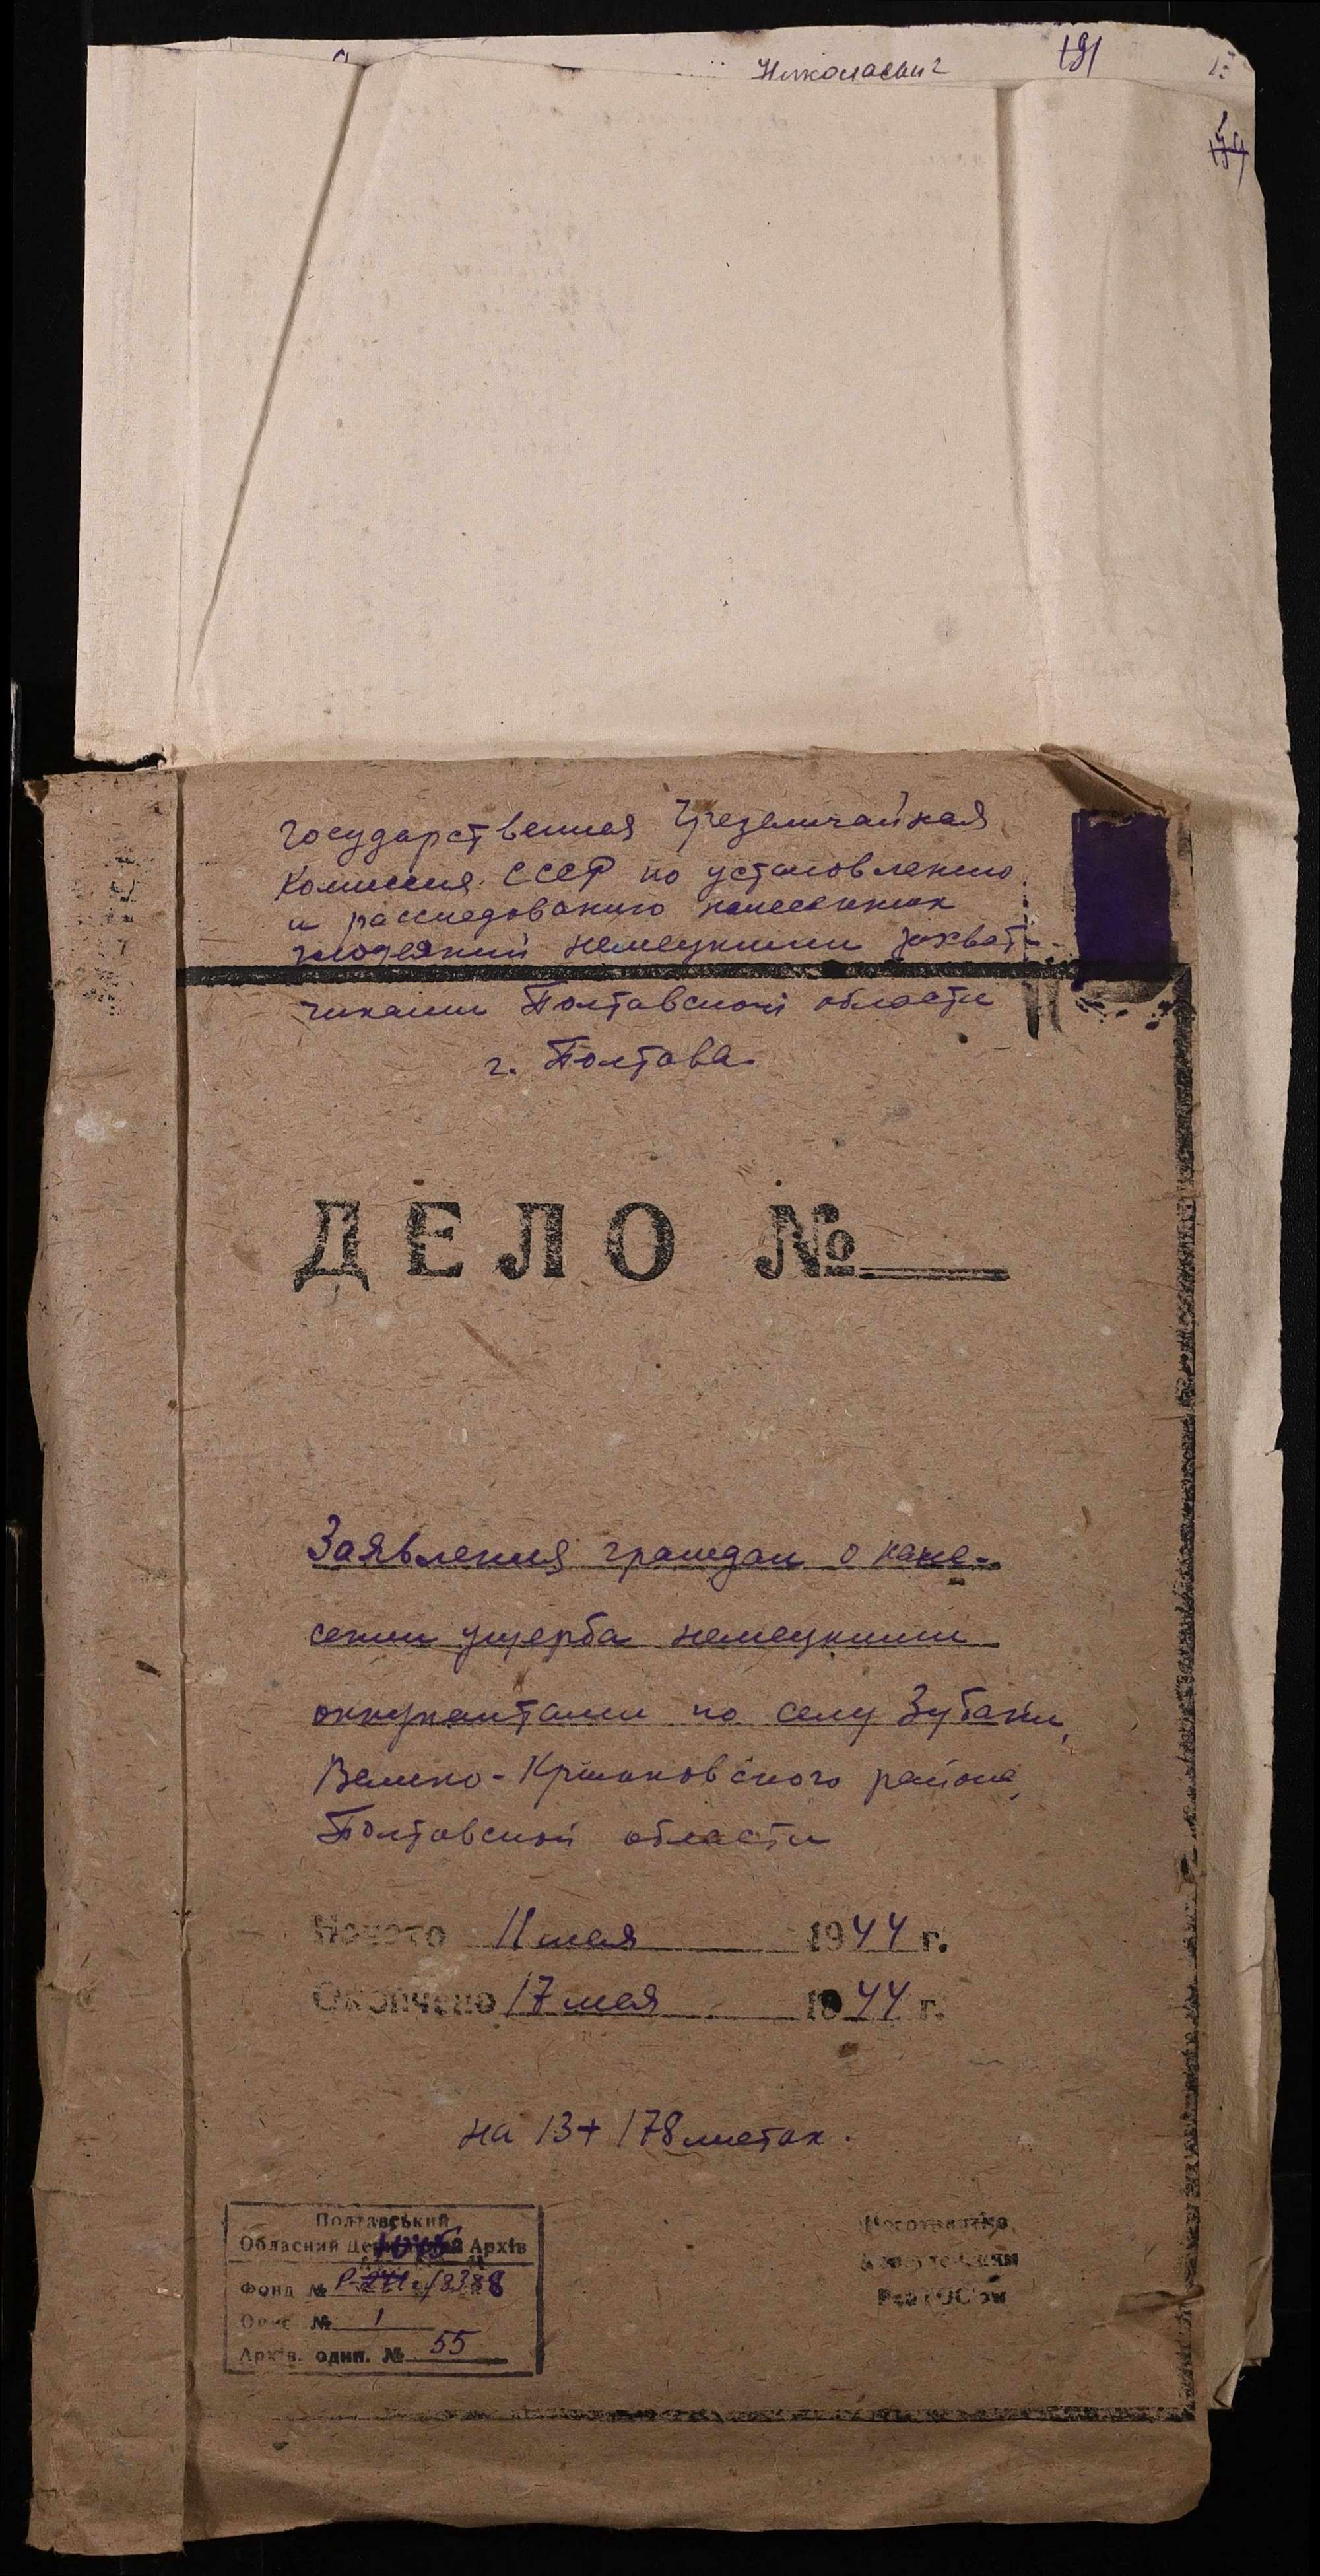 Николаевич 191
Государственная Чрезвычайная
Комиссия СССР по установлению
и расследованию нанесенных
злодеяний немецкими захват-
чиками Полтавской области
г. Полтава
ДЕЛО №
Заявления граждан о нане-
сении ущерба немецкими
оккупантами по селу Зубани,
Велико-Крынковского района,
Полтавской области
Начато 11 мая 1944 г.
Окончено 17 мая 1944 г.
на 13+178 листах.
Полтавський
Обласний Державний Архів
Фонд № Р-3388
Опис № 1
Архів. один. № 55